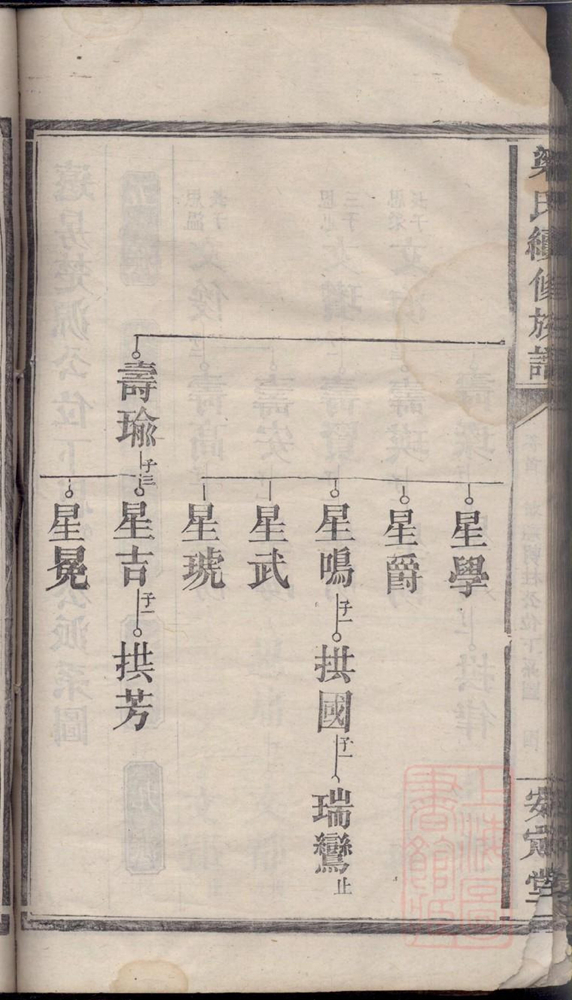 氏續修族譜
星學
星爵
星鳴 子一 拱國 子一 瑞鸞 止
星武
星琥
壽瑜 子三 星吉 子一 拱芳
星冕
堂
上海圖書館藏